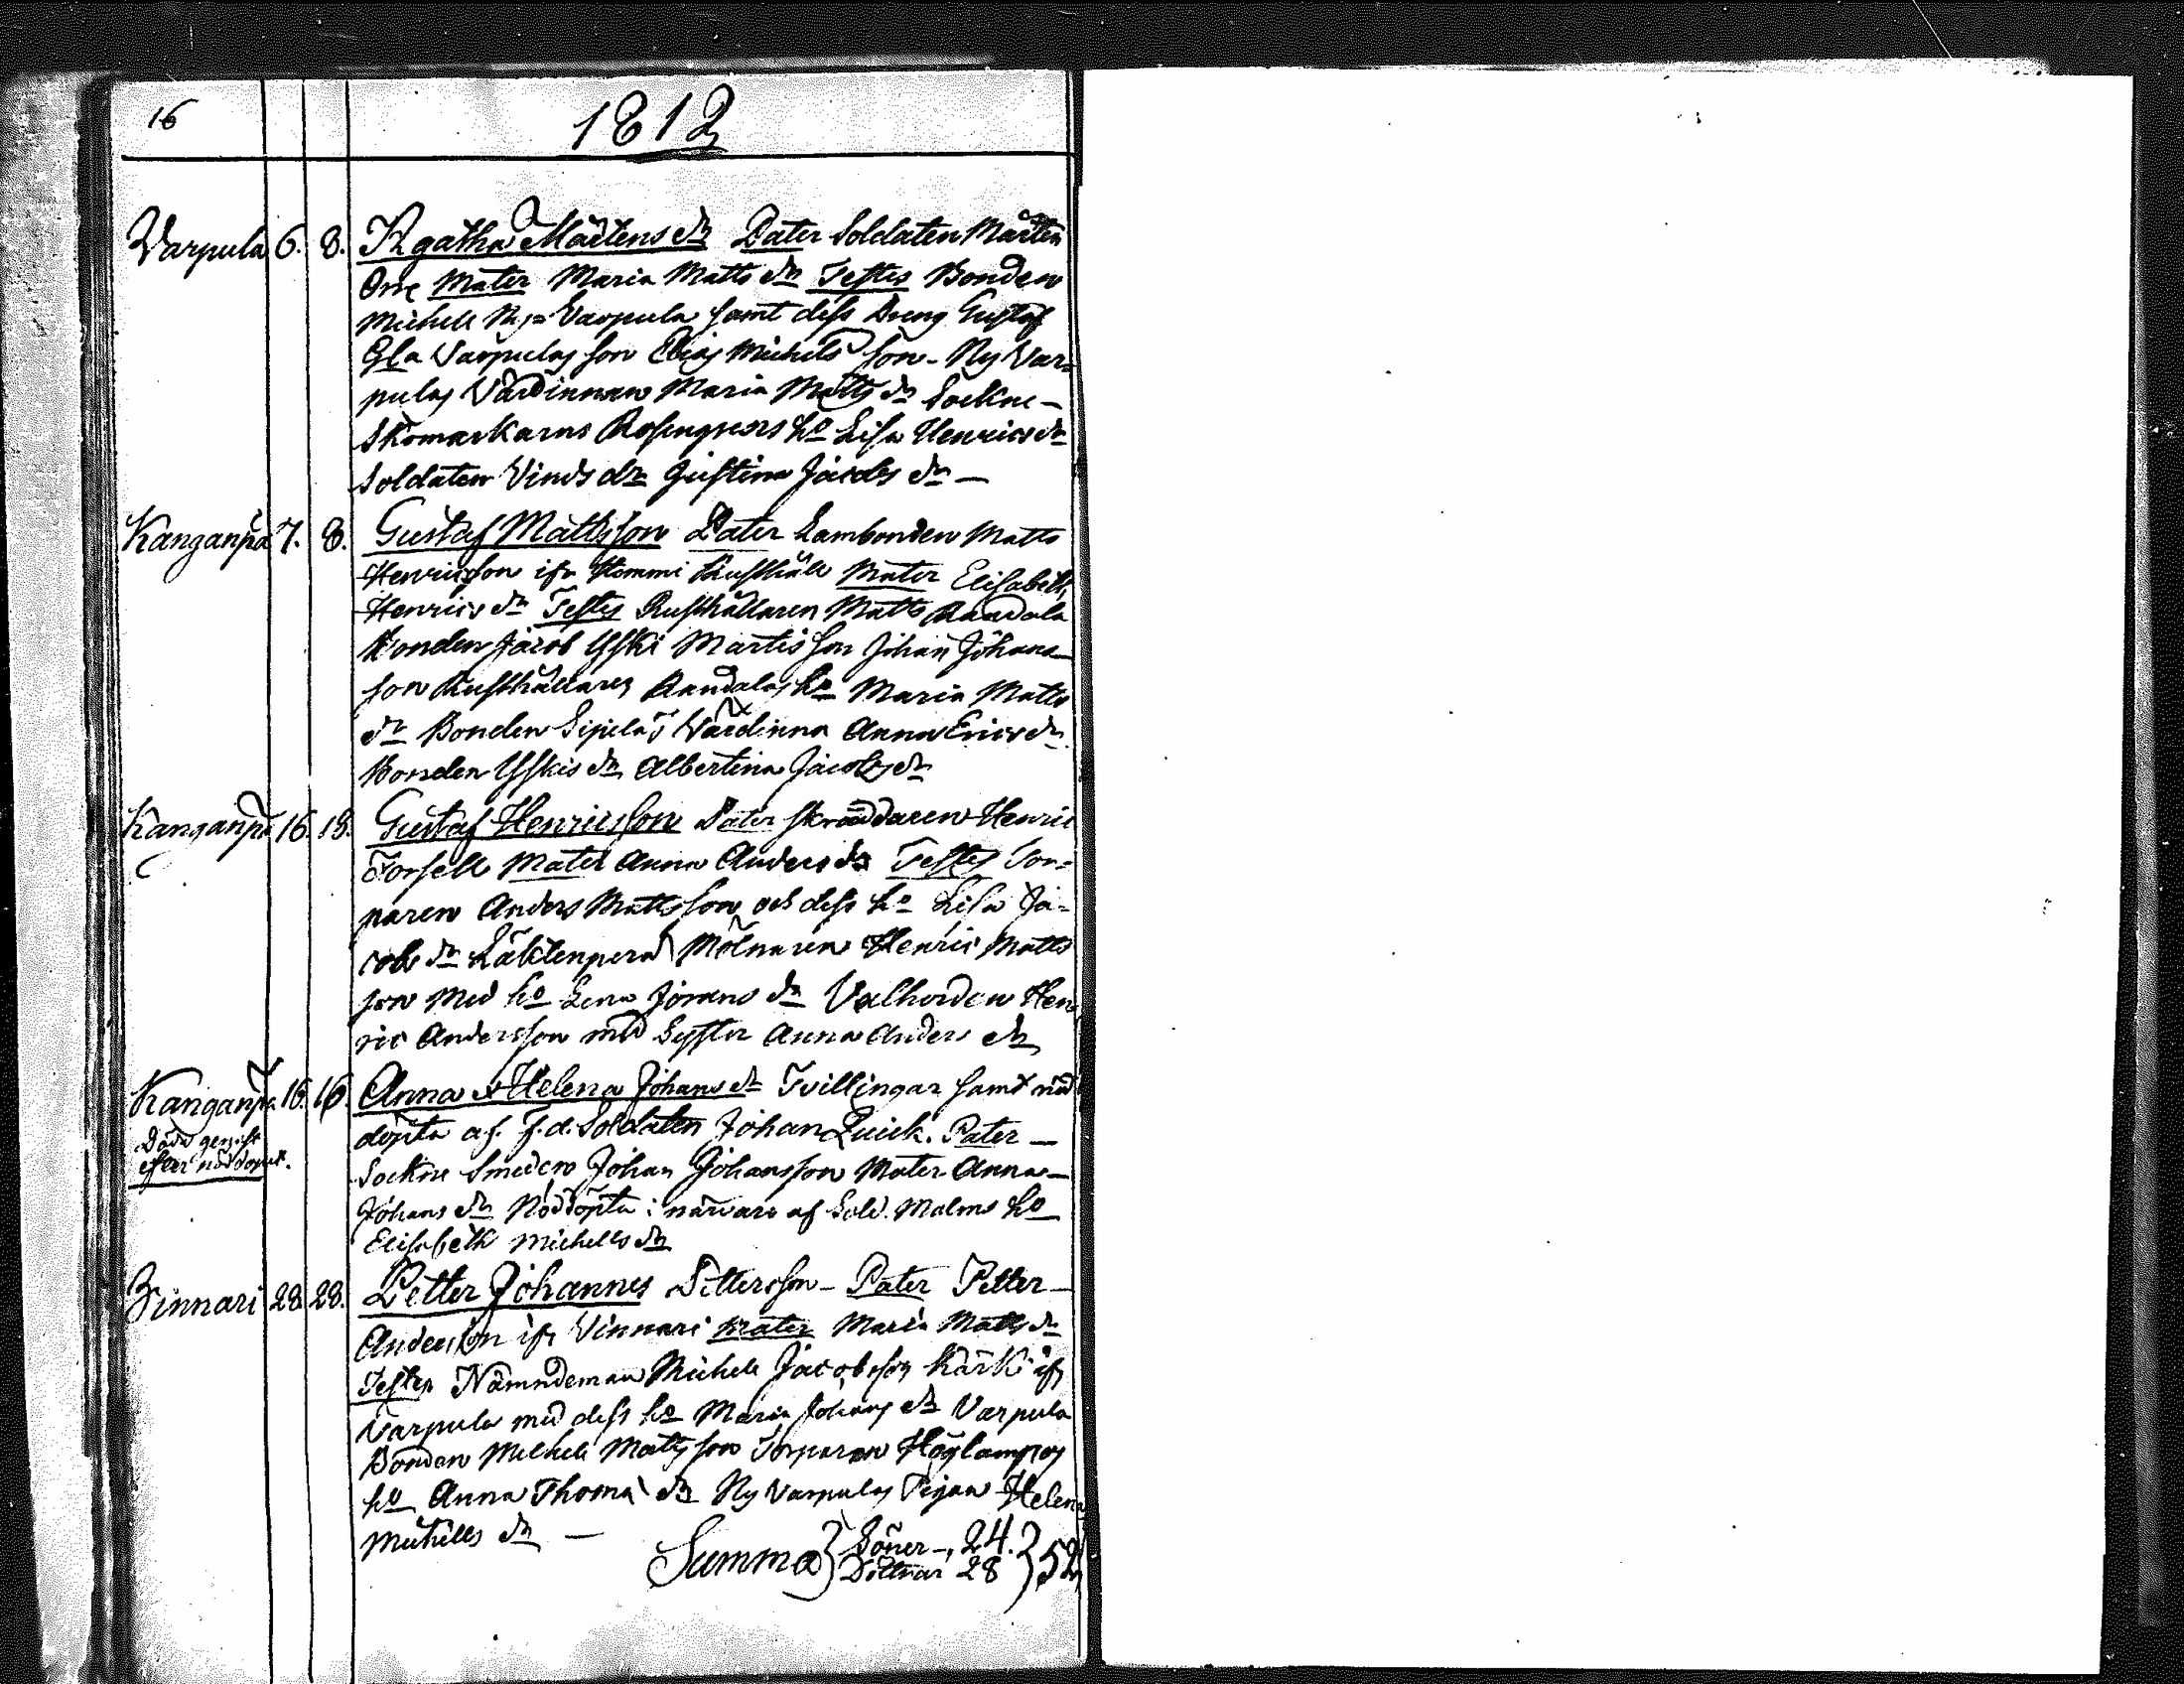 16
1812
Varpula 6. 8. Agatha Mårtens dr Pater Soldaten Mårten
Orre Mater Maria Matts dr Testes Bonden
Michell Ny=Varpula samt dess Dreng Gustaf
Gla Varpulas son Elias Michels son - Ny Var=
pulas Värdinnan Maria Matts dr Sockne-
Skomarkarns Rosenqvists ho Lisa Henrics dr
Soldaten Vinds dr Justina Jacobs dr -
Kanganpä 7. 8. Gustaf Mattsson Pater Lambonden Matts
Henricsson ifr Hommi Rusthåll Mater Elisabeth
Henrics dr Testes Rusthållaren Matts Raudala
Bonden Jacob Yski Martis son Johan Johans-
son Rusthållares Raudalas ho Maria Matts
dr Bonden Sipilas Värdinna Anna Erics dr
Bonden Yskis dr Albertina Jacobs dr
Kanganpä 16. 18. Gustaf Henricsson Pater Skräddaren Henric
Forsell Mater Anna Anders dr Testes Tor=
paren Anders Mattsson och dess ho Lisa Ja=
cobs dr Mölnaren Henric Matts
son med ho Lena Jörans dr Vallhorden Hen
ric Andersson med Syster Anna Anders dr
Kanganpä 16. 16. Anna & Helena Johans dr Tvillingar samt nöd
Döda genast
efter nöddopet.
döpta af f.d. Soldaten Johan Quick. Pater -
Sockne Smeden Johan Johansson Mater Anna -
Johans dr Nöddöpta i närvaro af Sold. Malms ho
Elisabeth Michells dr
Vinnari 28. 28. Petter Johannes Pettersson - Pater Petter -
Andersson ifr Vinnari Mater Maria Matts dr
Testes Nämndeman Michell Jacobsson Kärki ifr
Varpula med dess ho Maria Johans dr Varpula
Bonden Michell Mattsson Torparen Höglampos
ho Anna Thoma dr Ny Varpulas Pigan Helena
Michells dr -
Summa } Söner - 24. } 52
Döttrar 28